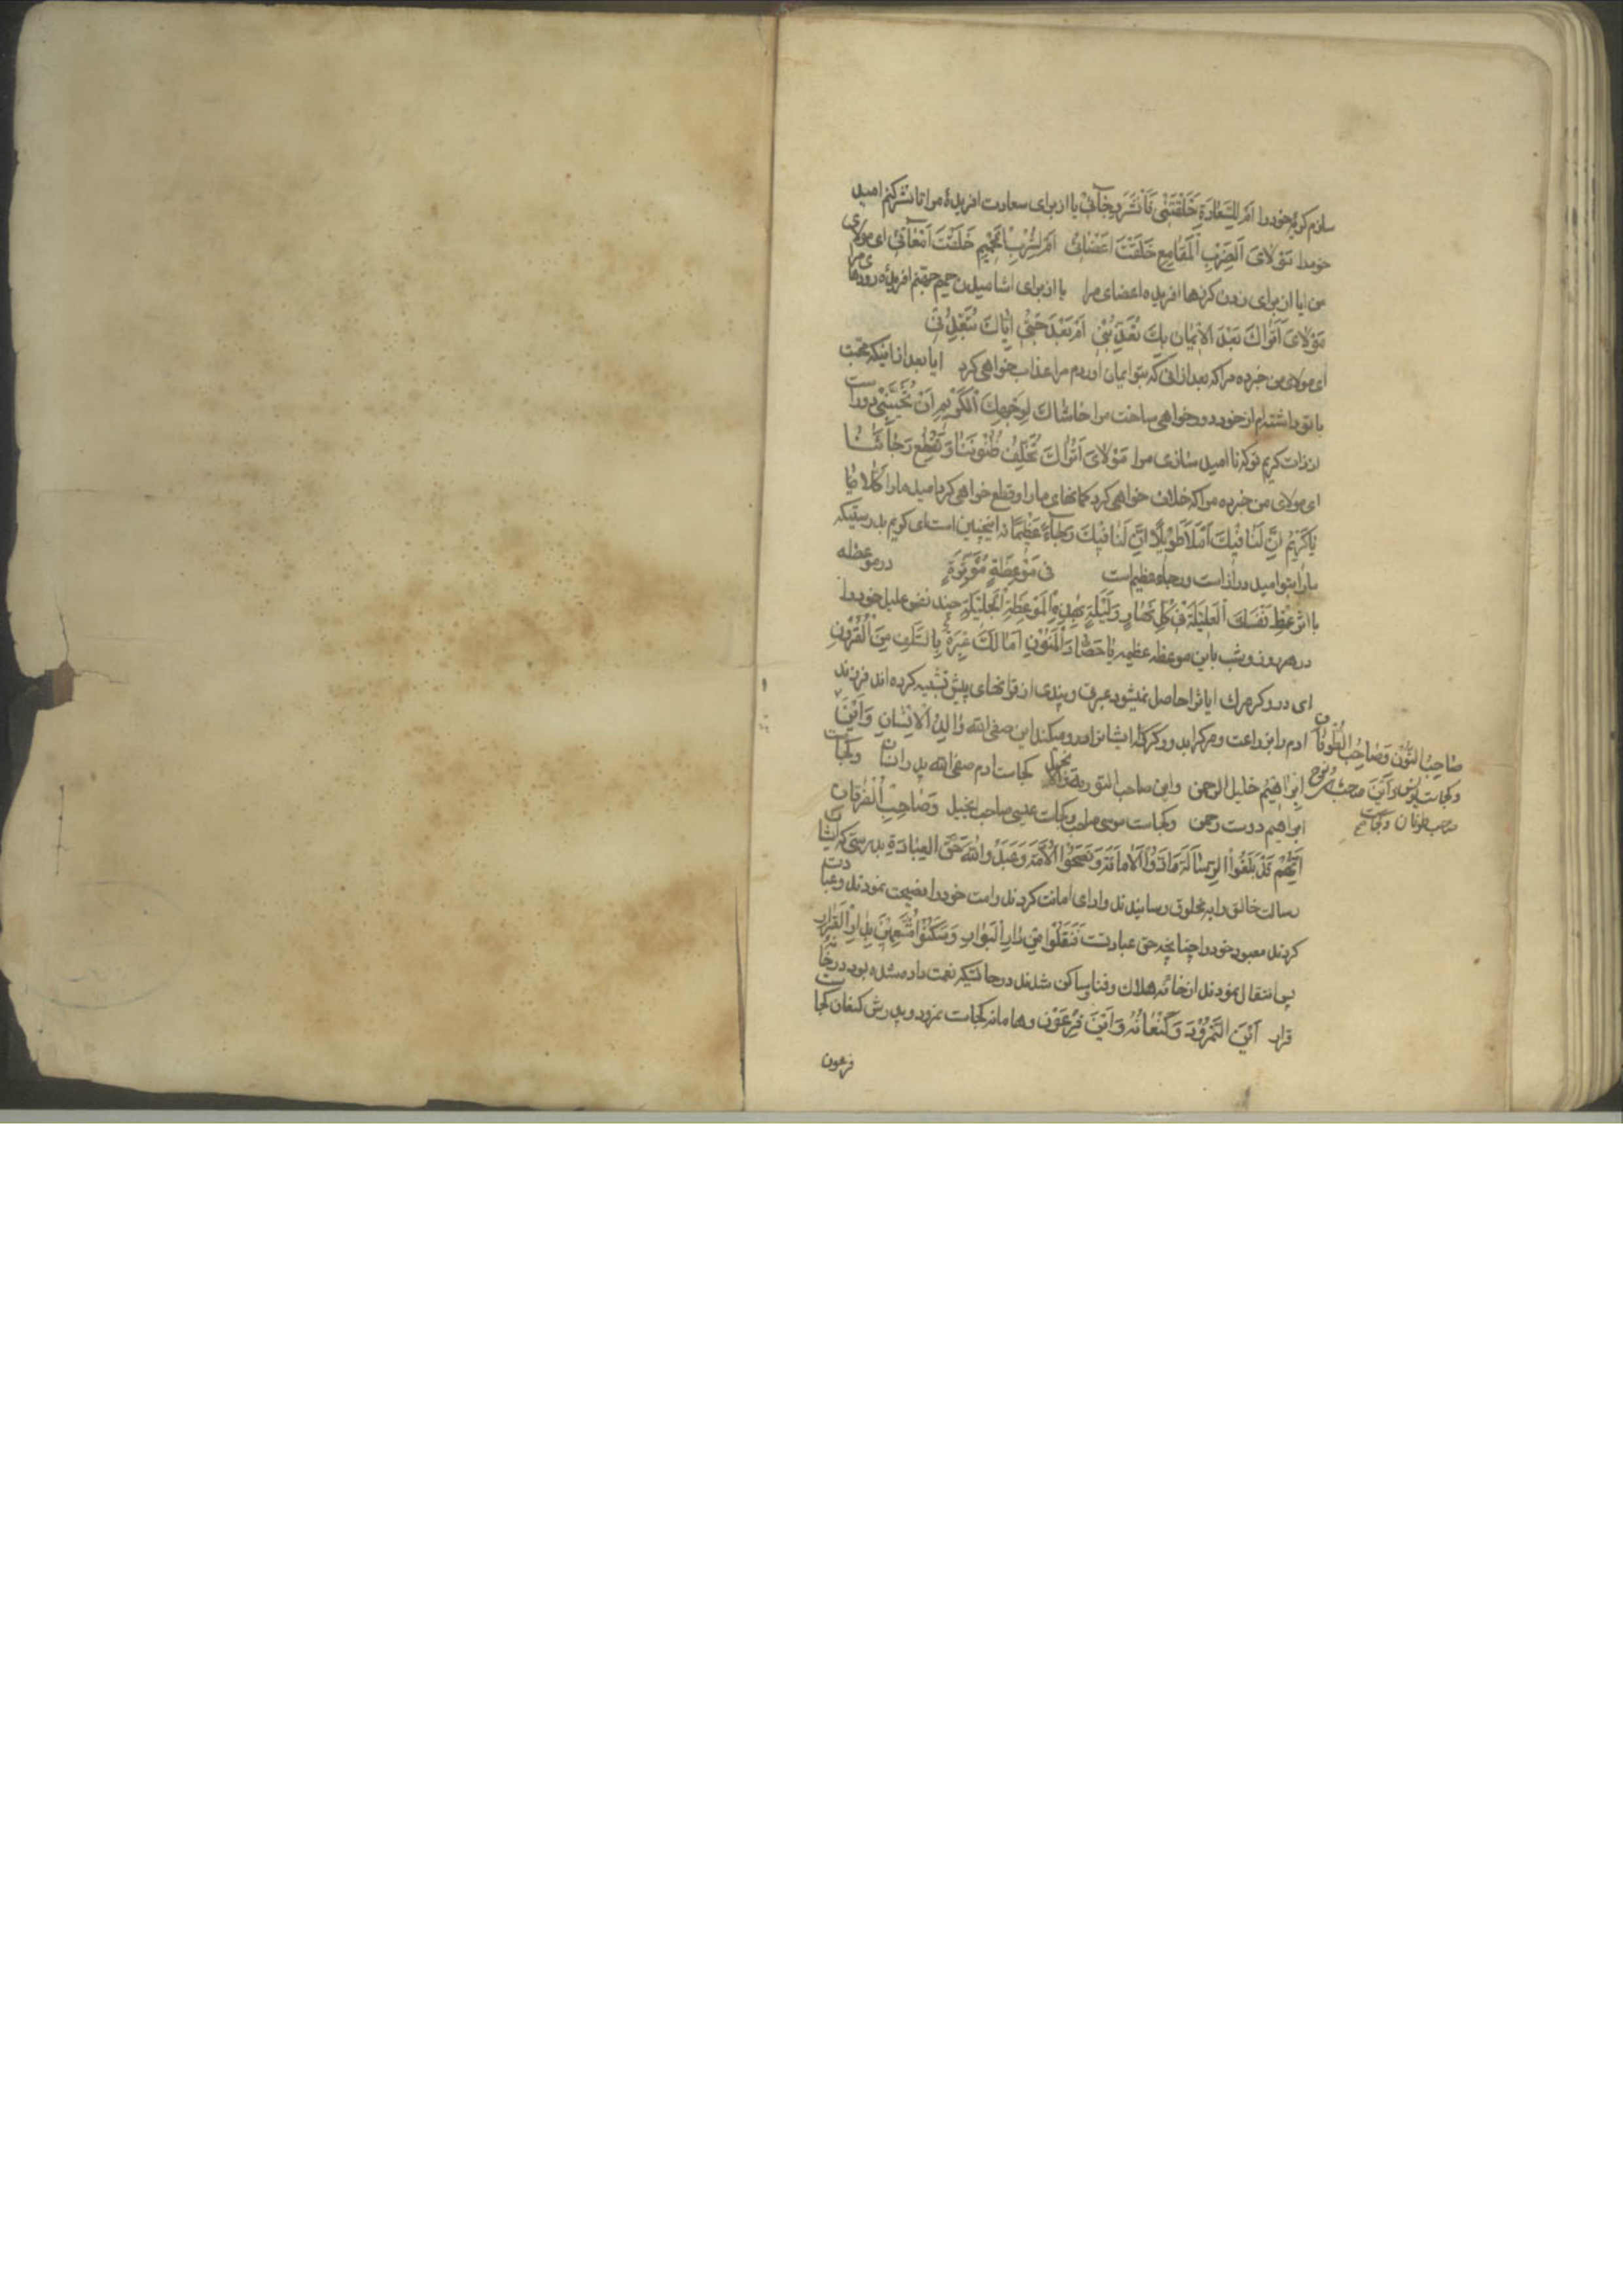 سازم کریهٔ خود را اَمْ لِلسَّعٰادَةِ خَلَقْتَنٖی فَاُنْشِرَ رِجٰآئٖی یا از برای سعادت افریدهٔ مرا تا نشر کنم امید
خود را مَوْلاٰیَ اَلِضَرْبِ الْمَقٰامِعِ خَلَقْتَ اَعْضٰائٖی اَمْ لِشُرْبِ الْحَمٖیمِ خَلَقْتَ اَمْعٰآئٖی ای مولای
من ایا از برای زدن کرزها افریدهٔ اعضای مرا یا از برای اشامیدن حمیم جهنم افریدهٔ رودهای مرا
مَوْلاٰیَ اَتُرٰاكَ بَعْدَ الْاٖیمٰانِ بِكَ تُعَذِّبُنٖی اَمْ بَعْدَ حُبّٖی اِیّٰاكَ تُبَعِّدُنٖی
ای مولای من خبر ده مرا که بعد از انی که بتو ایمان اوردم مرا عذاب خواهی کرد ایا بعد از اینکه محبت
با تو داشته‌ام از خود دور خواهی ساخت مرا حٰاشٰاكَ لِوَجْهِكَ الْكَرٖیمِ اَنْ تُخَیِّبَنٖی دور است
از ذات کریم تو که نا امید سازی مرا مَوْلاٰیَ اَتُرٰاكَ تُخْلِفُ ظُنُونَنٰا وَ تَقْطَعُ رَجٰآئَنٰا
ای مولای من خبر ده مرا که خلاف خواهی کرد کمانهای ما را و قطع خواهی کرد امید ما را كَلّاٰ یٰا
یٰا كَرٖیمُ اِنَّ لَنٰا فٖیكَ اَمَلاً طَوٖیلاً اِنَّ لَنٰا فٖیكَ رَجٰآءً عَظٖیمًا نه اینچنین است ای کریم بدرستیکه
ما را بتو امید دراز است و رجاء عظیم است فٖی مَوْعِظَةٍ مُؤَثِّرَةٍ در موعظه
با اثر عِظْ نَفْسَكَ الْعَلٖیلَةَ فٖی كُلِّ نَهٰارٍ وَ لَیْلَةٍ بِهٰذِهِ الْمَوْعِظَةِ الْجَلٖیلَةِ پند نفس علیل خود را
در هر روز و شب باین موعظه عظیمه یٰا حَصٰادَ الْمَنُونِ اَمٰا لَكَ عِبْرَةٌ بِالسَّلَفِ مِنَ الْقُرُونِ
ای درو کر مرك ایا ترا حاصل نمیشود عبرت و پندی از قرانهای پیش تشبیه کرده اند فرزند
ادم را بزراعت و مرك را بدرو کر که ایشانرا درو میکند این صفی الله وٰالِدُ الْاِنْسٰانِ وَ اَیْنَ
اِبْرٰاهٖیمُ خَلیل الرحمن واین صاحب التوریة والانجیل کجاست ادم صفی الله پدر انسان وکجاست
ابراهیم دوست رحمن وکجاست موسی صاحب وکجاست عیسی صاحب انجیل وَ صٰاحِبِ الْفُرْقٰانِ
اِنَّهُمْ قَدْ بَلَّغُوا الرِّسٰالَةَ وَ اَدَّوُا الْاَمٰانَةَ وَ نَصَحُوا الْاُمَّةَ وَ عَبَدُوا اللّٰهَ حَقَّ الْعِبٰادَةِ بدرستی که ایشان
رسالت خالق را به مخلوق رسانیدند و ادای امانت کردند و امت خود را نصیحت نمودند و عبادت
کردند معبود خود را چنانچه حق عبادتست فَنُقِلُوا مِنْ دٰارِ الْبَوٰارِ وَ سَكَنُوا مُنَعَّمٖینَ بِدٰارِ الْقَرٰارِ
پس انتقال نمودند از خانه هلاك و فنا و ساکن شدند در حالتیکه نعمت داده شده بود در خانه
قرار اَیْنَ النَّمْرُودُ وَ كَنْعٰانُهُ وَ اَیْنَ فِرْعَوْن وهامانه کجاست نمرود و پدرش کنعان کجاست
فرعون
صٰاحِبُ النُّون وَ صٰاحِبُ الطُّوفٰان
وکجاست یونس و این صاحب نوح
صاحب طوفان وکجاست